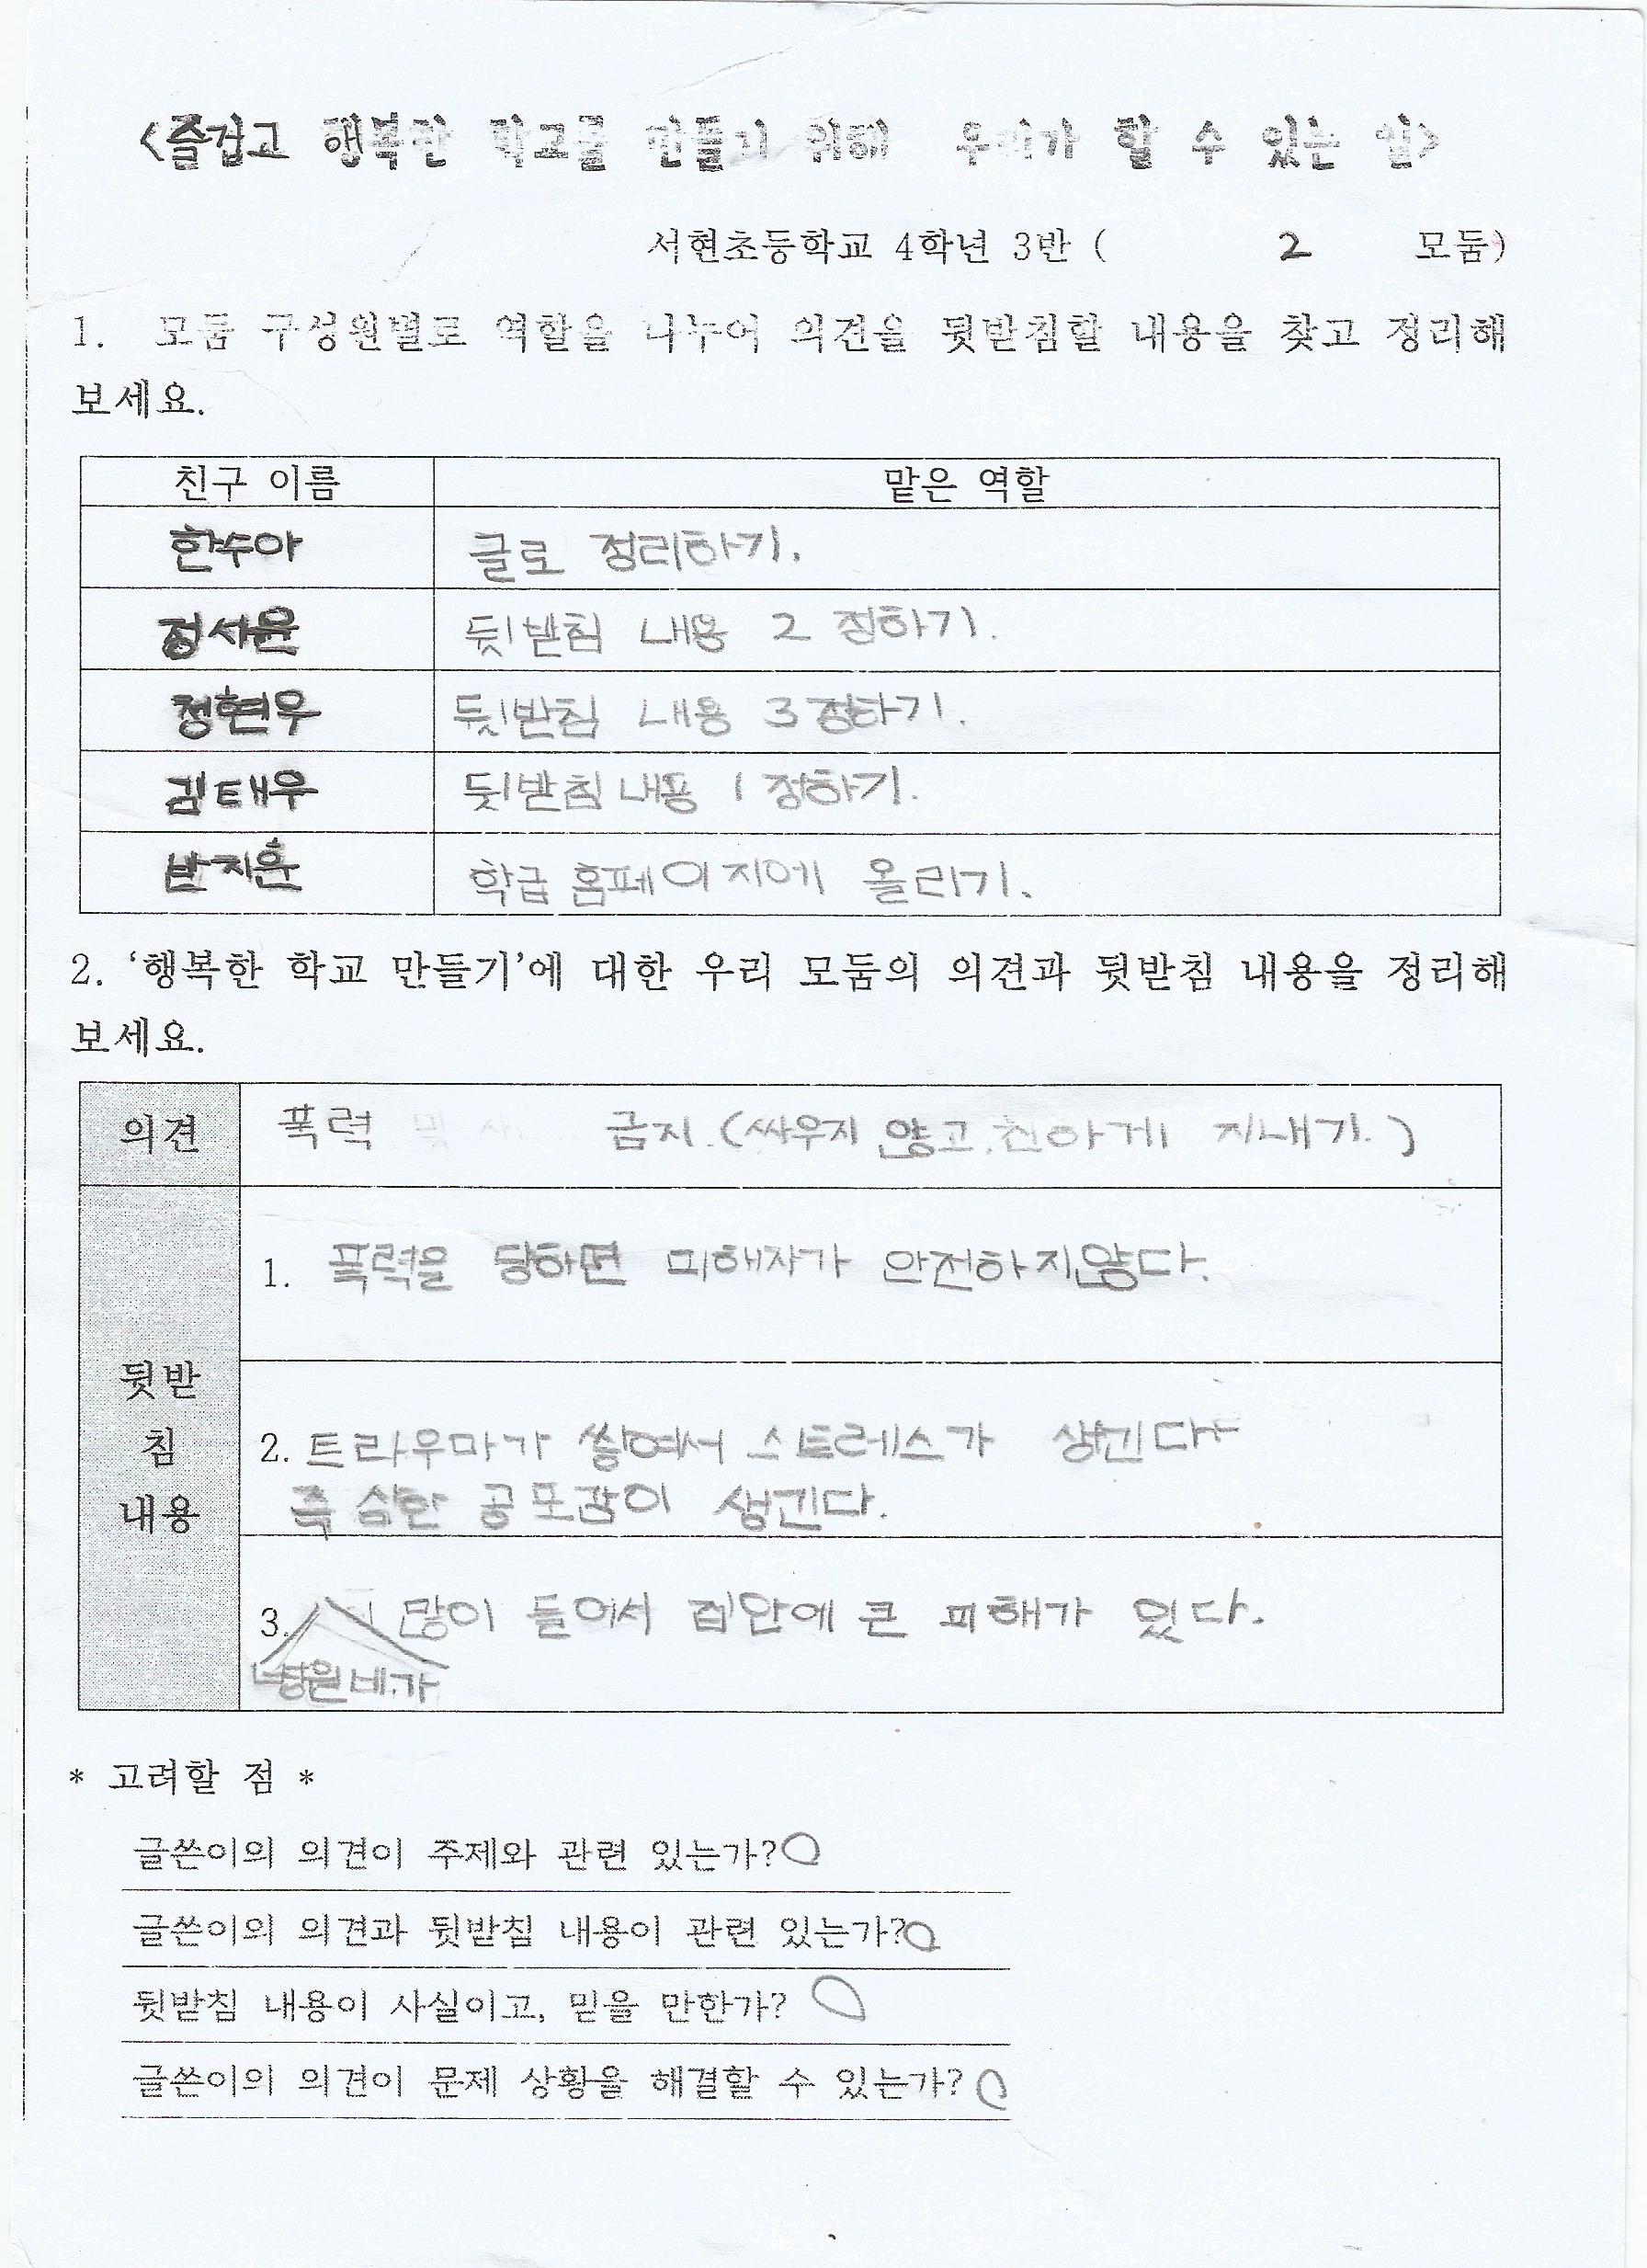 <즐겁고 행복한 학교를 만들기 위해 우리가 할 수 있는 일>
서현초등학교 4학년 3반 ( 2 모둠)
1. 모둠 구성원별로 역할을 나누어 의견을 뒷받침할 내용을 찾고 정리해
보세요.
친구 이름 맡은 역할
한수아 글로 정리하기.
정서윤 뒷받침 내용 2 정하기.
정현우 뒷받침 내용 3 정하기.
김태우 뒷받침 내용 1 정하기.
박지훈 학급 홈페이지에 올리기.
2. ‘행복한 학교 만들기’에 대한 우리 모둠의 의견과 뒷받침 내용을 정리해
보세요.
의견 폭력 금지. (싸우지 않고, 친하게 지내기.)
뒷받
침
내용
1. 폭력을 당하면 피해자가 안전하지않다.
2. 트라우마가 쌓여서 스트레스가 생긴다
즉 심한 공포감이 생긴다.
3. 많이 들어서 집안에 큰 피해가 있다.
병원비가
* 고려할 점 *
글쓴이의 의견이 주제와 관련 있는가? O
글쓴이의 의견과 뒷받침 내용이 관련 있는가? O
뒷받침 내용이 사실이고, 믿을 만한가? O
글쓴이의 의견이 문제 상황을 해결할 수 있는가? O